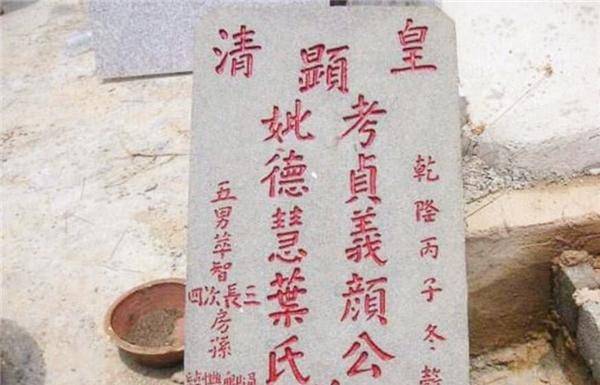 皇顯清
乾隆丙子冬
考貞義顏公
妣德慧葉氏
五男萃智
三長次四
房孫